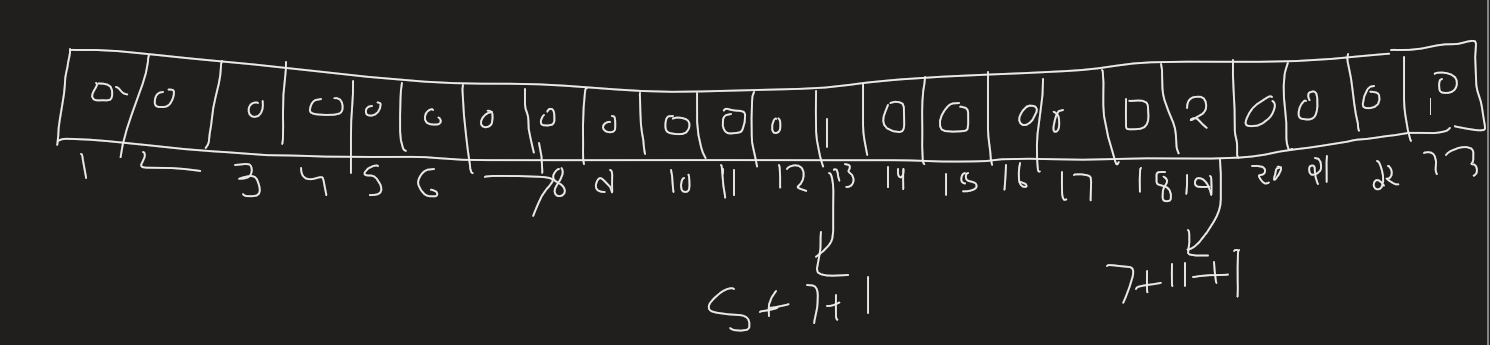 0 0 0 0 0 0 0 0 0 0 0 0 1 0 0 0 0 0 2 0 0 0 0
1 2 3 4 5 6 7 8 9 10 11 12 13 14 15 16 17 18 19 20 21 22 23
5+7+1 7+11+1